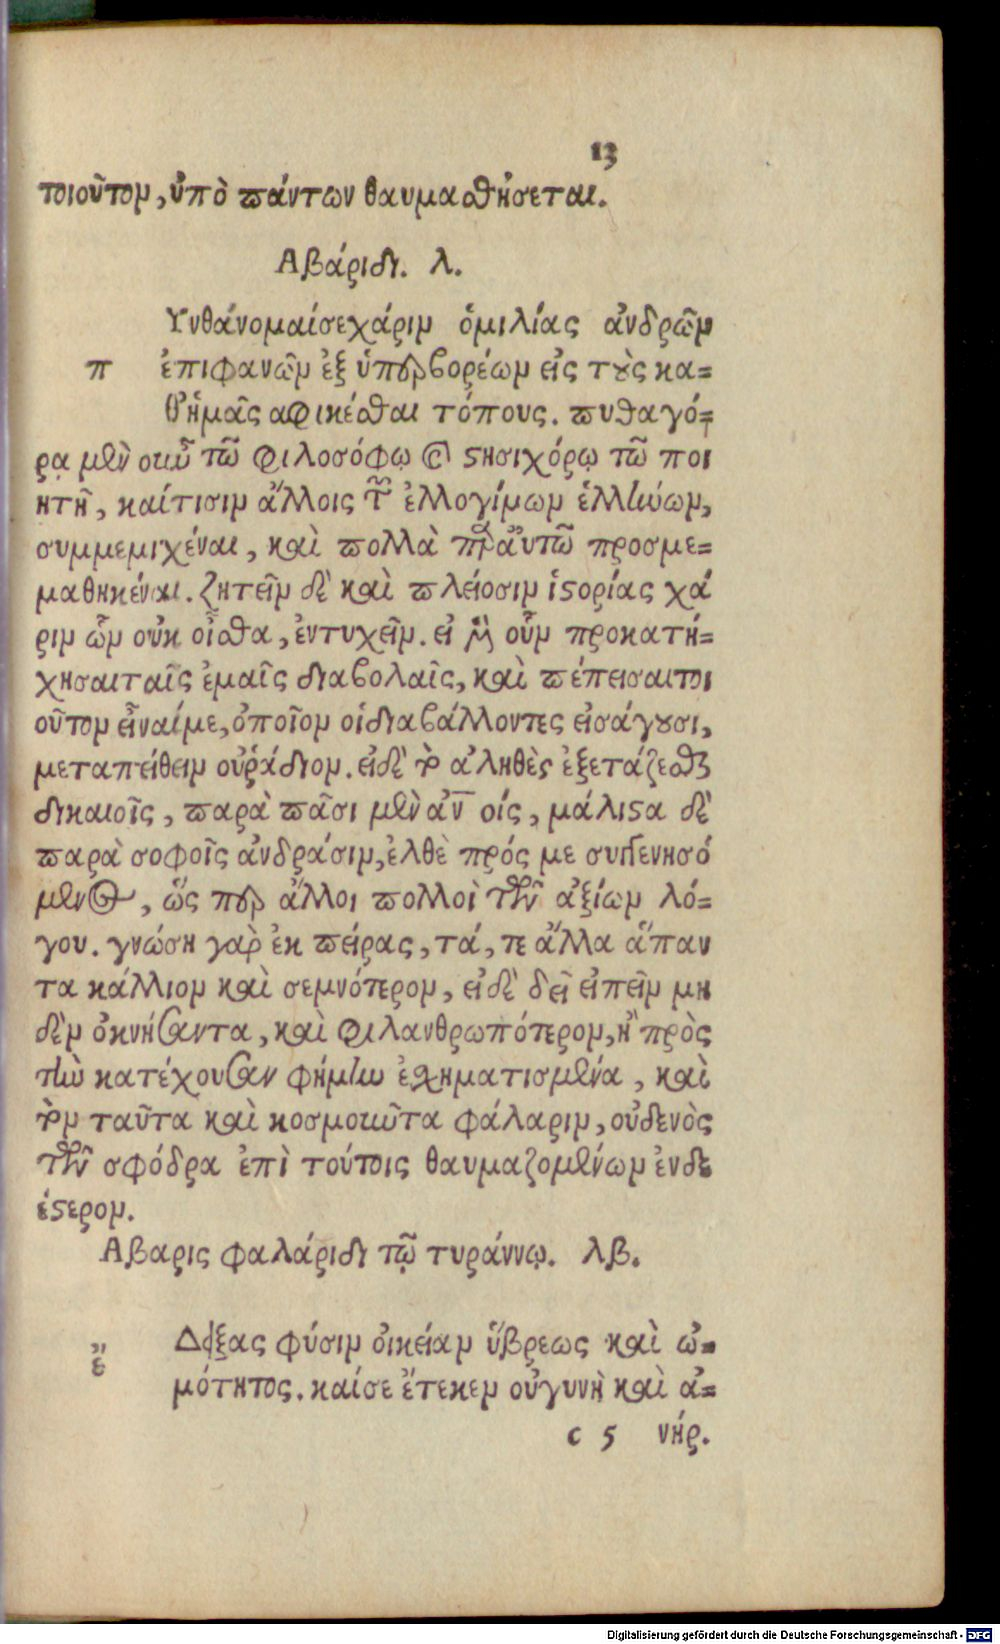 13
τοιοῦτον, ὑπὸ πάντων θαυμασθήσεται.
Αβάριδι. λ.
Υνθάνομαίσεχάριν ὁμιλίας ἀνδρῶν
π ἐπιφανῶν ἐξ ὑπερβορέων εἰς τοὺς κα=
θ' ἡμᾶς ἀφικέσθαι τόπους. πυθαγό=
ρᾳ μὲν οὖν τῶ φιλοσόφῳ καὶ στησιχόρῳ τῶ ποι
ητῆ, καίτισιν ἄλλοις τῶν ἐλλογίμων ἑλλήνων,
συμμεμιχέναι, καὶ πολλὰ παρ' αὐτῶ προσμε=
μαθηκέναι. ζητεῖν δὲ καὶ πλείοσιν ἱστορίας χά
ριν ὧν οὐκ οἶσθα, ἐντυχεῖν. εἰ μὲν οὖν προκατή=
χησαιταῖς ἐμαῖς διαβολαῖς, καὶ πέπεισαιτοι
οῦτον εἶναίμε, ὁποῖον οἱδιαβάλλοντες εἰσάγουσι,
μεταπείθειν οὐῤάδιον. εἰδὲ τὸ ἀληθὲς ἐξετάζεσθαι
δικαιοῖς, παρὰ πᾶσι μὲν ἀν οἷς, μάλιστα δὲ
παρὰ σοφοῖς ἀνδράσιν, ἐλθὲ πρός με συγγενησό
μενος, ὥσπερ ἄλλοι πολλοὶ τῶν ἀξίων λό=
γου. γνώση γαρ ἐκ πείρας, τά, τε ἄλλα ἅπαν
τα κάλλιον καὶ σεμνότερον, εἰδὲ δεῖ εἰπεῖν μη
δὲν ὀκνήσαντα, καὶ φιλανθρωπότερον, ἢ πρὸς
τὴν κατέχουσαν φήμην ἐσχηματισμένα, καὶ
τὸν ταῦτα καὶ κοσμοῦντα φάλαριν, οὐδενὸς
τῶν σφόδρα ἐπὶ τούτοις θαυμαζομένων ἐνδε
έστερον.
Αβαρις φαλάριδι τῷ τυράννῳ. λβ.
Δειξας φύσιν οἰκείαν ὕβρεως καὶ ὠ=
ἔ μότητος. καίσε ἔτεκεν οὐγυνὴ καὶ ἀ=
c 5 νήρ.
Digitalisierung gefördert durch die Deutsche Forschungsgemeinschaft - DFG